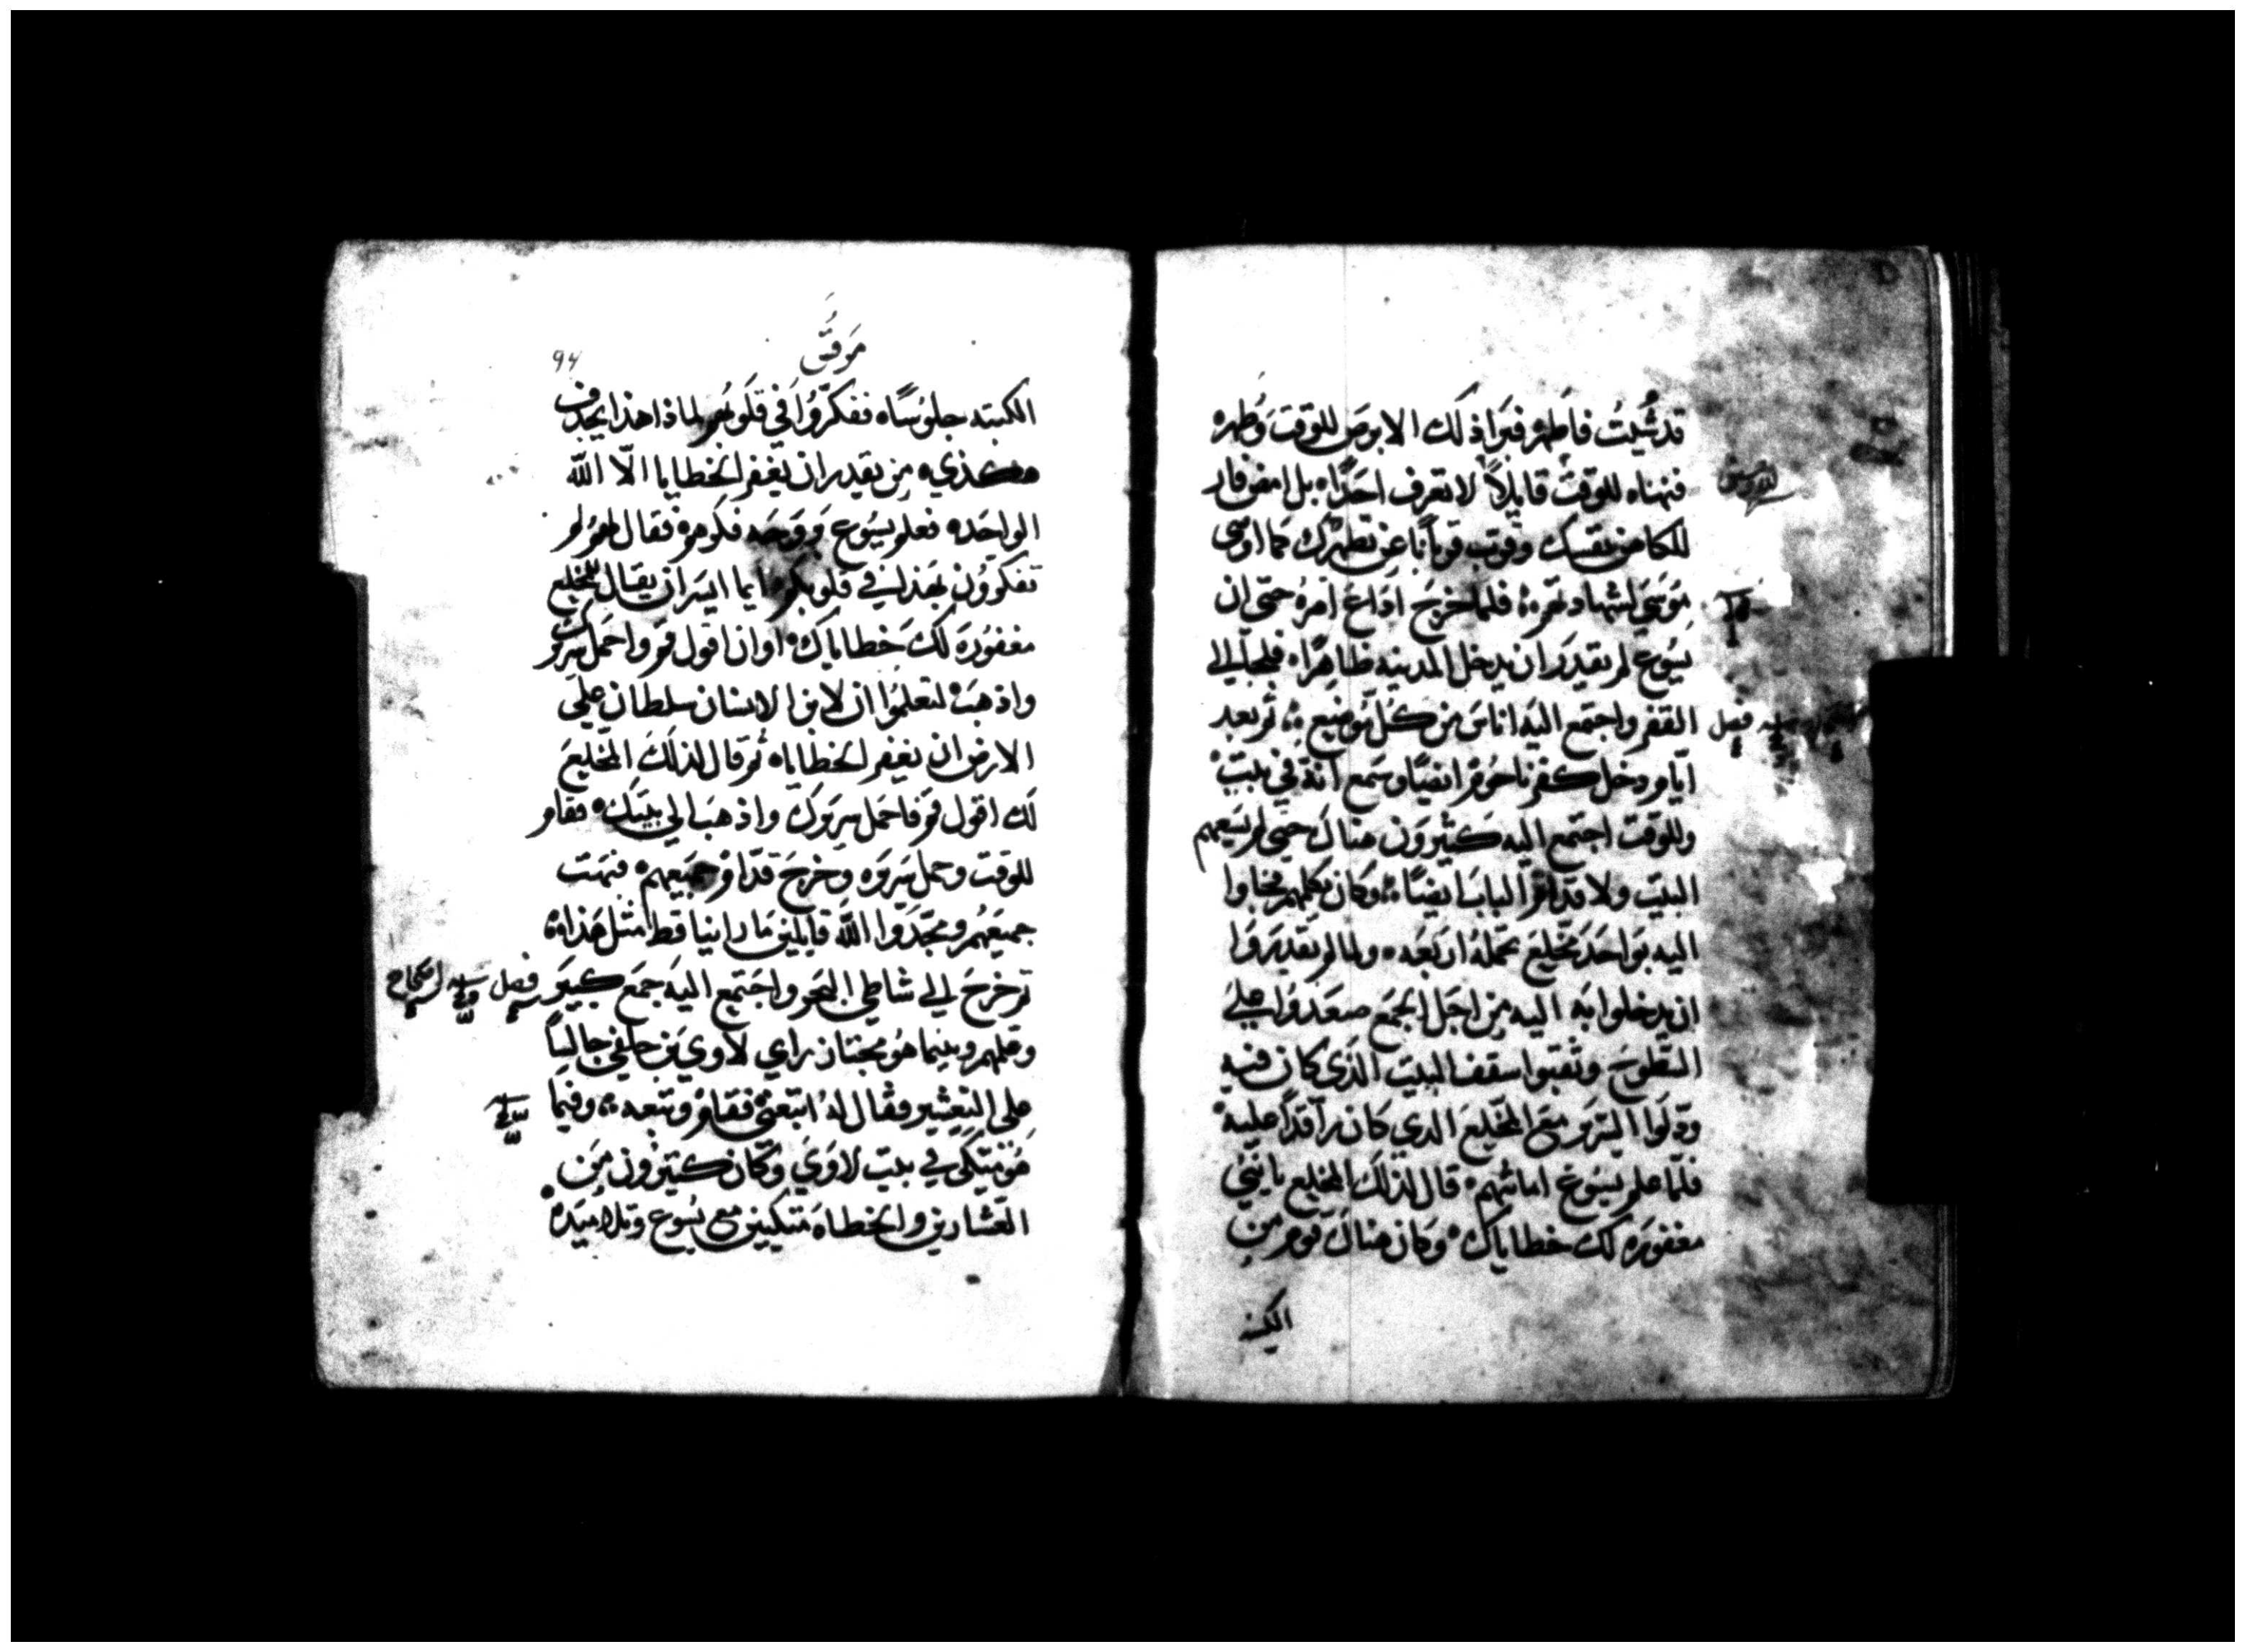 قد شيت فاطهر فبراذلك الابرص للوقت وطهره
فنهاه للوقت قايلاً لا تعرف احداه بل امض فار
للكاهن نفسك وقرب قرباناً عن تطهرك كما اوصى
موسي لشهادتهم فلما خرج اذاع امره حتى ان
يسوع لم يقدر ان يدخل المدينه ظاهراه فلجا الي
القفر واجتمع اليه اناس من كل موضع ثم بعد
فصل
ايام دخل كفرناحوم ايضاً وسمع انه في بيت
وللوقت اجتمع اليه كثيرون هناك حتى لم يسعهم
البيت ولا قدام الباب ايضاً وكان يكلمهم فجاوا
اليه بواحد مخلع تحمله اربعه ولما لم يقدروا
ان يدخلوا به اليه من اجل الجمع صعدوا علي
السطوح وثقبوا سقف البيت الذي كان فيه
ودلوا السرير مع المخلع الدي كان راقداً عليه
فلما علم يسوع امانتهم قال لذلك المخلع يا بني
مغفوره لك خطاياك وكان هناك قوم من
الكتبه
مرقس
94
الكتبه جلوساه ففكروا في قلوبهم لماذا هذا يجدف
هكذي من يقدر ان يغفر الخطايا الا الله
الواحده فعلم يسوع بروحه فكرهم فقال لهم لم
تفكرون بهذا في قلوبكم ايما ايسر ان يقال للمخلع
مغفوره لك خطاياك او ان اقول قم واحمل سريرك
واذهب لتعلموا ان لابن الانسان سلطان علي
الارض ان يغفر الخطاياه ثم قال لذلك المخلع
لك اقول قم فاحمل سريرك واذهب الي بيتك فقام
للوقت وحمل سريره وخرج قدام جميعهم فبهت
جميعهم ومجدوا الله قايلين ما راينا قط مثل هذاه
ثم خرج الي شاطي البحر واجتمع اليه جمع كبير
فصل
وعلمهم وبينما هو مجتاز راي لاوي بن حلفي جالساً
على التعشير فقال له اتبعني فقام وتبعه وفيما
هو متكي في بيت لاوي وكان كثيرون من
العشارين والخطاه متكيين مع يسوع وتلاميذه